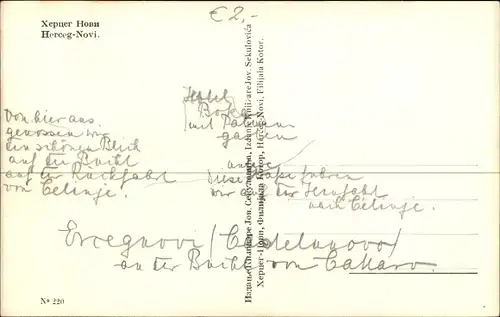 € 2,-
Херцег Нови
Herceg-Novi.
Hotel
Boka
mit Palmen
garten
Von hier aus
genossen wir
den schönen Blick
auf die Bucht
auf der Rückfahrt
von Cetinje.
Diese fuhren
wir auf der
nach Cetinje.
Ercegnovi (Castelnuovo)
an der Bucht von Cattaro.
Издање Книжаре Јов. Секуловића, Izdanje Knjižare Jov. Sekulovića
Херцег-Нови, Филијала Котор, Herceg-Novi, Filijala Kotor.
№ 220